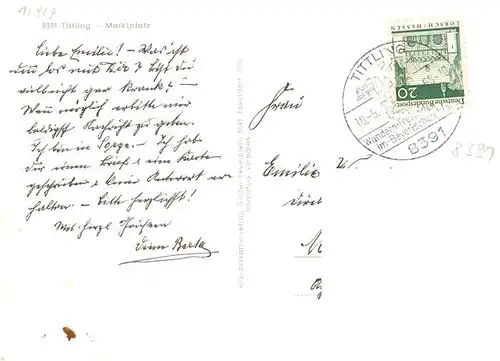 8391 Tittling - Marktplatz
Liebe Emilie! - Was ist
denn los mit Dir? Bist du
vielleicht gar krank? -
Wenn möglich erbitte mir
baldigst Nachricht zu geben.
Ich bin in Sorge. - Ich hab
dir einen Brief & eine Karte
geschrieben & keine Antwort er-
halten. - Bitte herzlichst!
Mit herzl Grüssen
Deine Berta
Frau
Emilie
LORSCH/HESSEN
Deutsche Bundespost
20
TITTLING
8391
8391